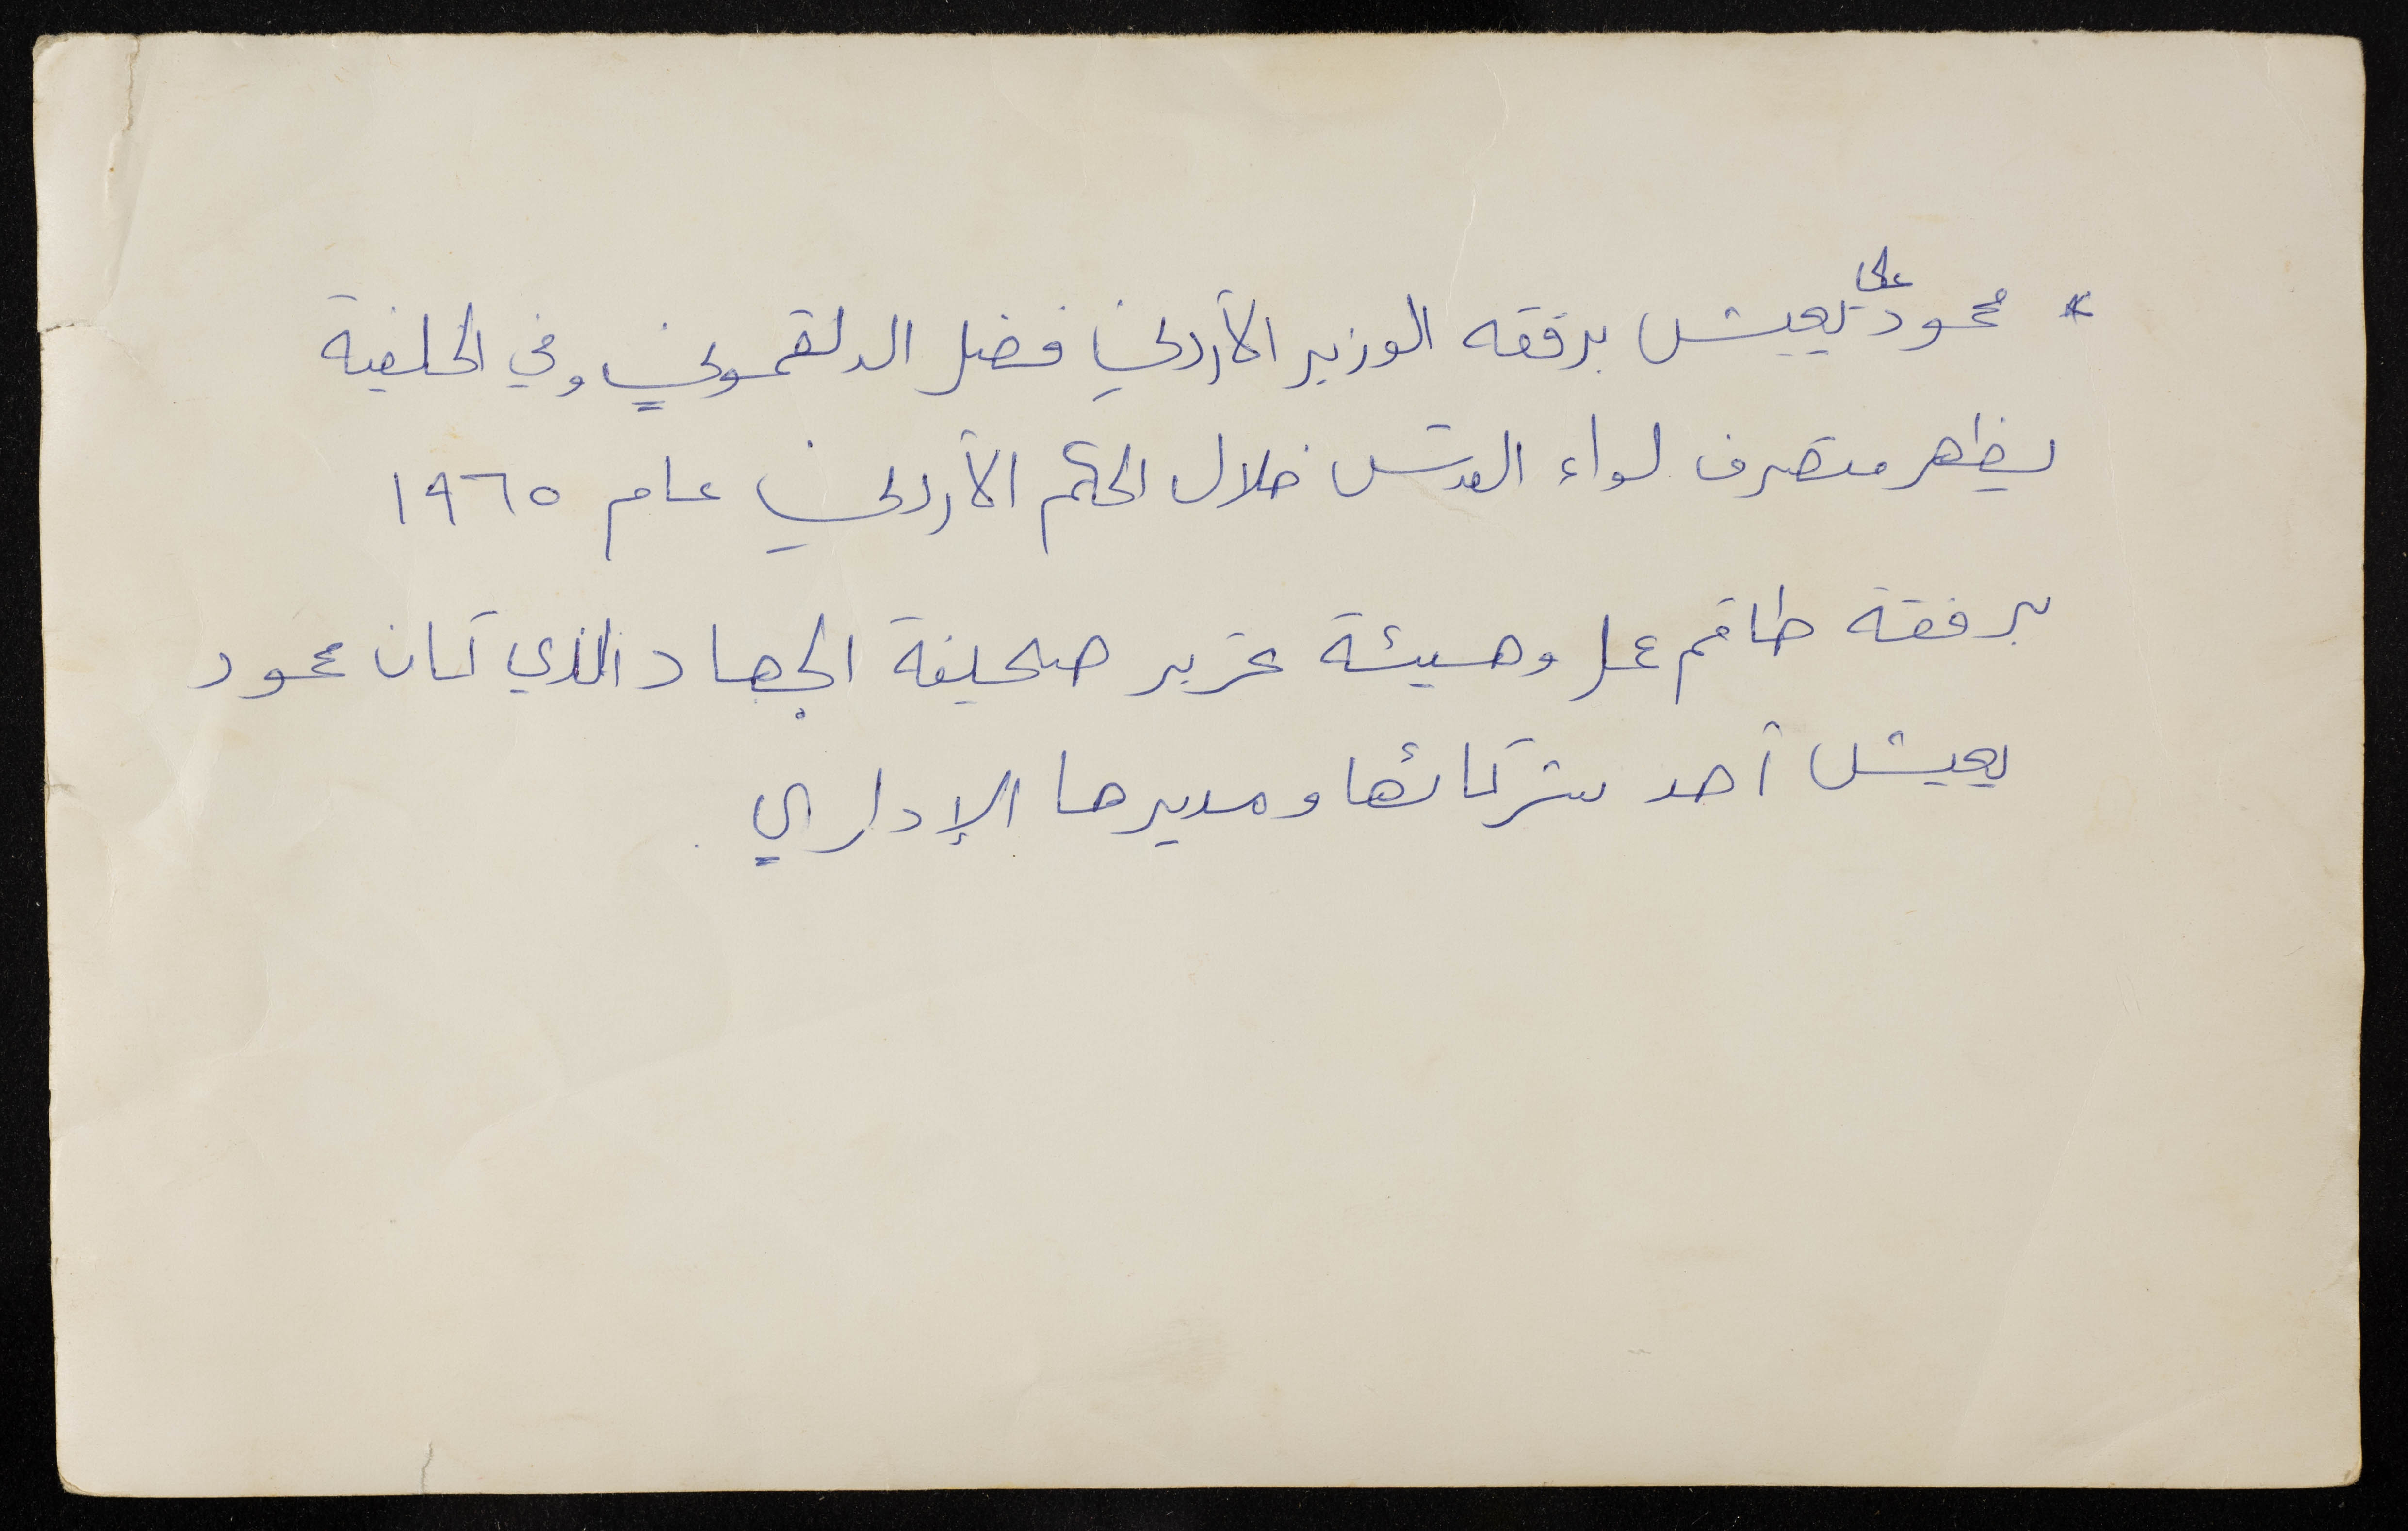 * محمود علي يعيش برفقه الوزير الأردني فضل الدلقموني وفي الخلفية
يظهر متصرف لواء القدس خلال الحكم الأردني عام ١٩٦٥
برفقة طاقم عمل وهيئة تحرير صحيفة الجهاد الذي كان محمود
يعيش أحد شركائها ومديرها الإداري.